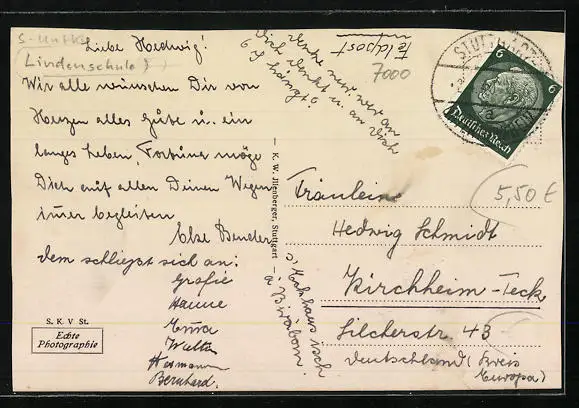 S-Untk
(Lindenschule)
Liebe Hedwig!
Wir alle wünschen Dir von
Herzen alles Gute u. ein
langes Leben, Fortuna möge
Dich auf allen Deinen Wegen
imer begleiten
Else Bender
dem schließt sich an:
Hanne
Erna
Walter
Hermann
Bernhard.
S. K. V St.
Echte
Photographie
K. W. Jlenberger, Stuttgart
Feldpost
7000
Denke nur wer an
Dich denkt u. an Dich
STUTTGART
6
6
Deutsches Reich
5,50 €
Fräulein
Hedwig Schmidt
Kirchheim-Teck
Silcherstr. 43
Deutschland (Kreis
Europa)
a Birabom!